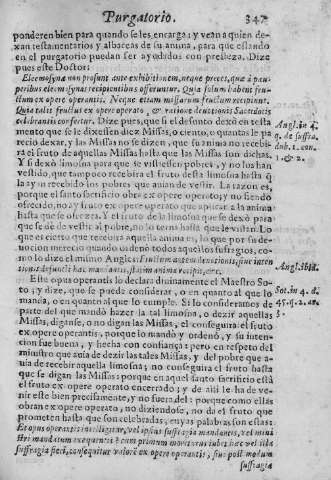 Purgatorio. 347
ponderen bien para quando se les encarga; y vean a quien de-
xan testamentarios y albaceas de su anima, para que estando
en el purgatorio puedan ser ayudados con presteza. Dize
pues este Doctor:
Eleemosynæ non prosunt ante exhibitionem, neque preces, quæ à pau-
peribus eleemosynas recipientibus offeruntur. Quia solum habent fru-
ctum ex opere operantis. Neque etiam missarum fructum recipiunt.
Quia talis fructus ex opere operato, & ratione deuotionis Sacerdotis
celebrantis confertur. Dize pues, que si el defunto dexò en testa
mento que se le dixessen diez Missas, o ciento, o quantas le pa-
recio dexar, y las Missas no se dizen, que su anima no recebi-
rà el fruto de aquellas Missas hasta que las Missas son dichas.
Y si dexò limosna para que se vistiessen pobres, y no los han
vestido, que tampoco recebira el fruto desta limosna hasta q̃
la aya recebido los pobres que auian de vestir. La razon es,
porque el santo sacrificio obra ex opere operato; y no siendo
ofrecido, no ay fruto ex opere operato que aplicar a la anima
hasta que se ofrezca. Y el fruto de la limosna que se dexò para
que se dè de vestir al pobre, no lo terna hasta que le vistan. Lo
que es cierto que recebira aquella anima es, lo que por su de-
uocion merecio quando ordenò todos aquellos sufragios, co-
mo lo dize el mismo Angles: Fructum autem deuotionis, siue inten
tionis defuncti hac mandantis, statim anima recipit, &c.
Este opus operantis lo declara diuinamente el Maestro So-
to; y dize, que se puede considerar, o en quanto al que lo
manda, o en quanto al que lo cumple. Si lo consideramos de
parte del que mandò hazer la tal limosna, o dezir aquellas
Missas, diganse, o no digan las Missas, el conseguira el fruto
ex opere operantis, porque lo mandò y ordenò, y su inten-
cion fue buena, y hecha con confiança: pero en respeto del
ministro que auia de dezir las tales Missas, y del pobre que a-
uia de recebir aquella limosna; no conseguira el fruto hasta
que se digan las Missas: porque en aquel santo sacrificio està
el fruto ex opere operato encerrado; y de alli le ha de ve-
nir este bien precisamente, y no fuera del: porque como ellas
obran ex opere operato, no diziendose, no da el fruto que
prometen hasta que son celebradas, en vas palabras son estas:
Et opus operantis intelligitur, vel ipsius suffragia mandantis, vel mini
stri mandatum exequentis: & cum primum moriturus iubet hæc vel illa
suffragia fieri, consequitur valorẽ ex opere operantis, siue post modum
suffragia
Angl. in 4.
q. de suffra.
dub. 1. con.
1. & 2.
Angl. ibid.
Sot. in 4. d.
45. q. 2. ar.
3.